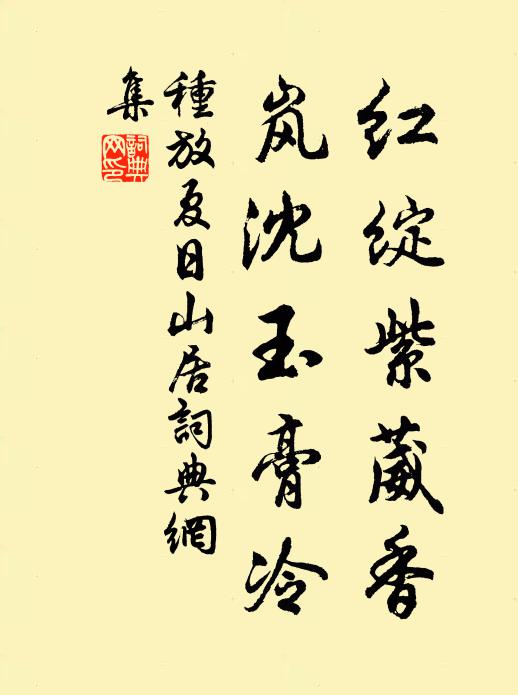 红绽紫葳香
岚沈玉膏冷
種放夏日山居詞典網
集
詞典網印